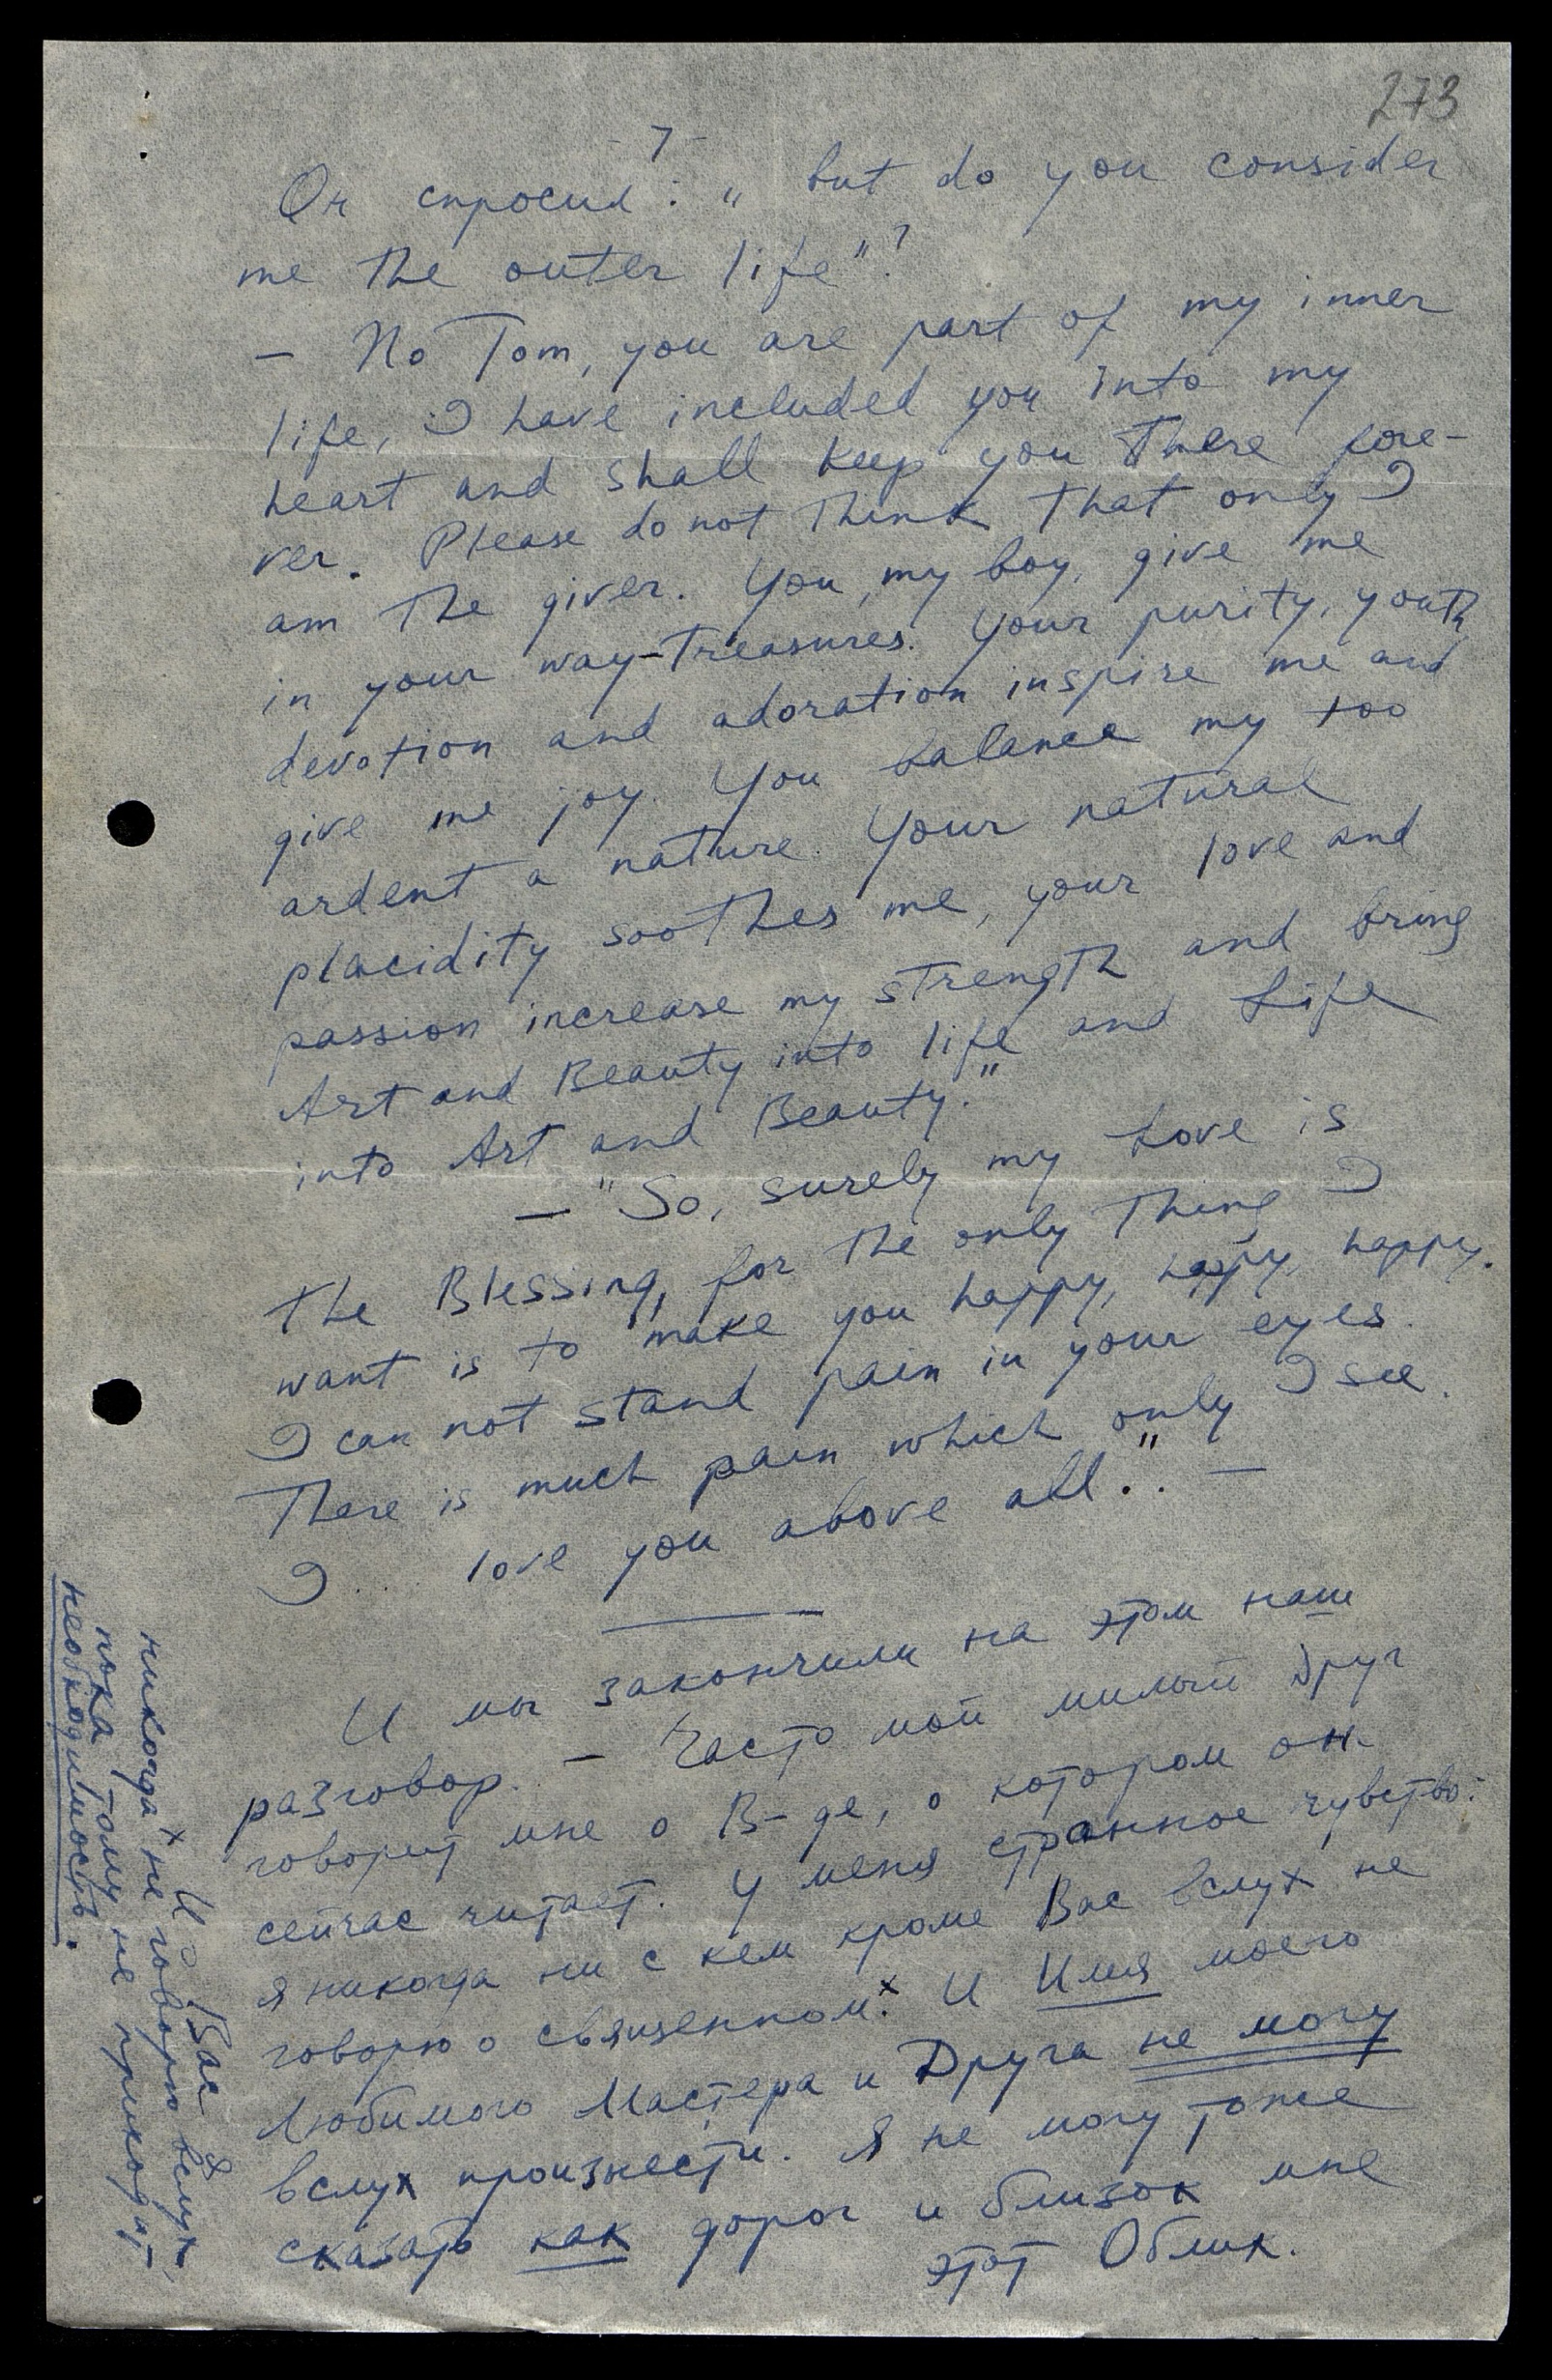 273
- 7 -
Он спросил: „ but do you consider
me the outer life"?
— No Tom, you are part of my inner
life, I have included you into my
heart and shall keep you there fore-
ver. Please do not think that only I
am the giver. You, my boy, give me
in your way-treasures. Your purity, youth,
devotion and adoration inspire me and
give me joy. You balance my too
ardent a nature. Your natural
placidity soothes me, your love and
passion increase my strength and bring
Art and Beauty into life and Life
into Art and Beauty."
— "So, surely my Love is
the Blessing, for the only thing I
want is to make you happy, happy, happy.
I can not stand pain in your eyes.
There is much pain which only I see.
I .... love you above all." . —
И мы закончили на этом наш
разговор. — Часто мой милый друг
говорит мне о В-де, о котором он
сейчас читает. У меня странное чувство:
я никогда ни с кем кроме Вас вслух не
говорю о священном.ˣ И Имя моего
Любимого Мастера и Друга не могу
вслух произнести. Я не могу тоже
сказать как дорог и близок мне
этот Облик.
х И Вас я
никогда не говорю вслух,
пока тому не приходит
необходимость.